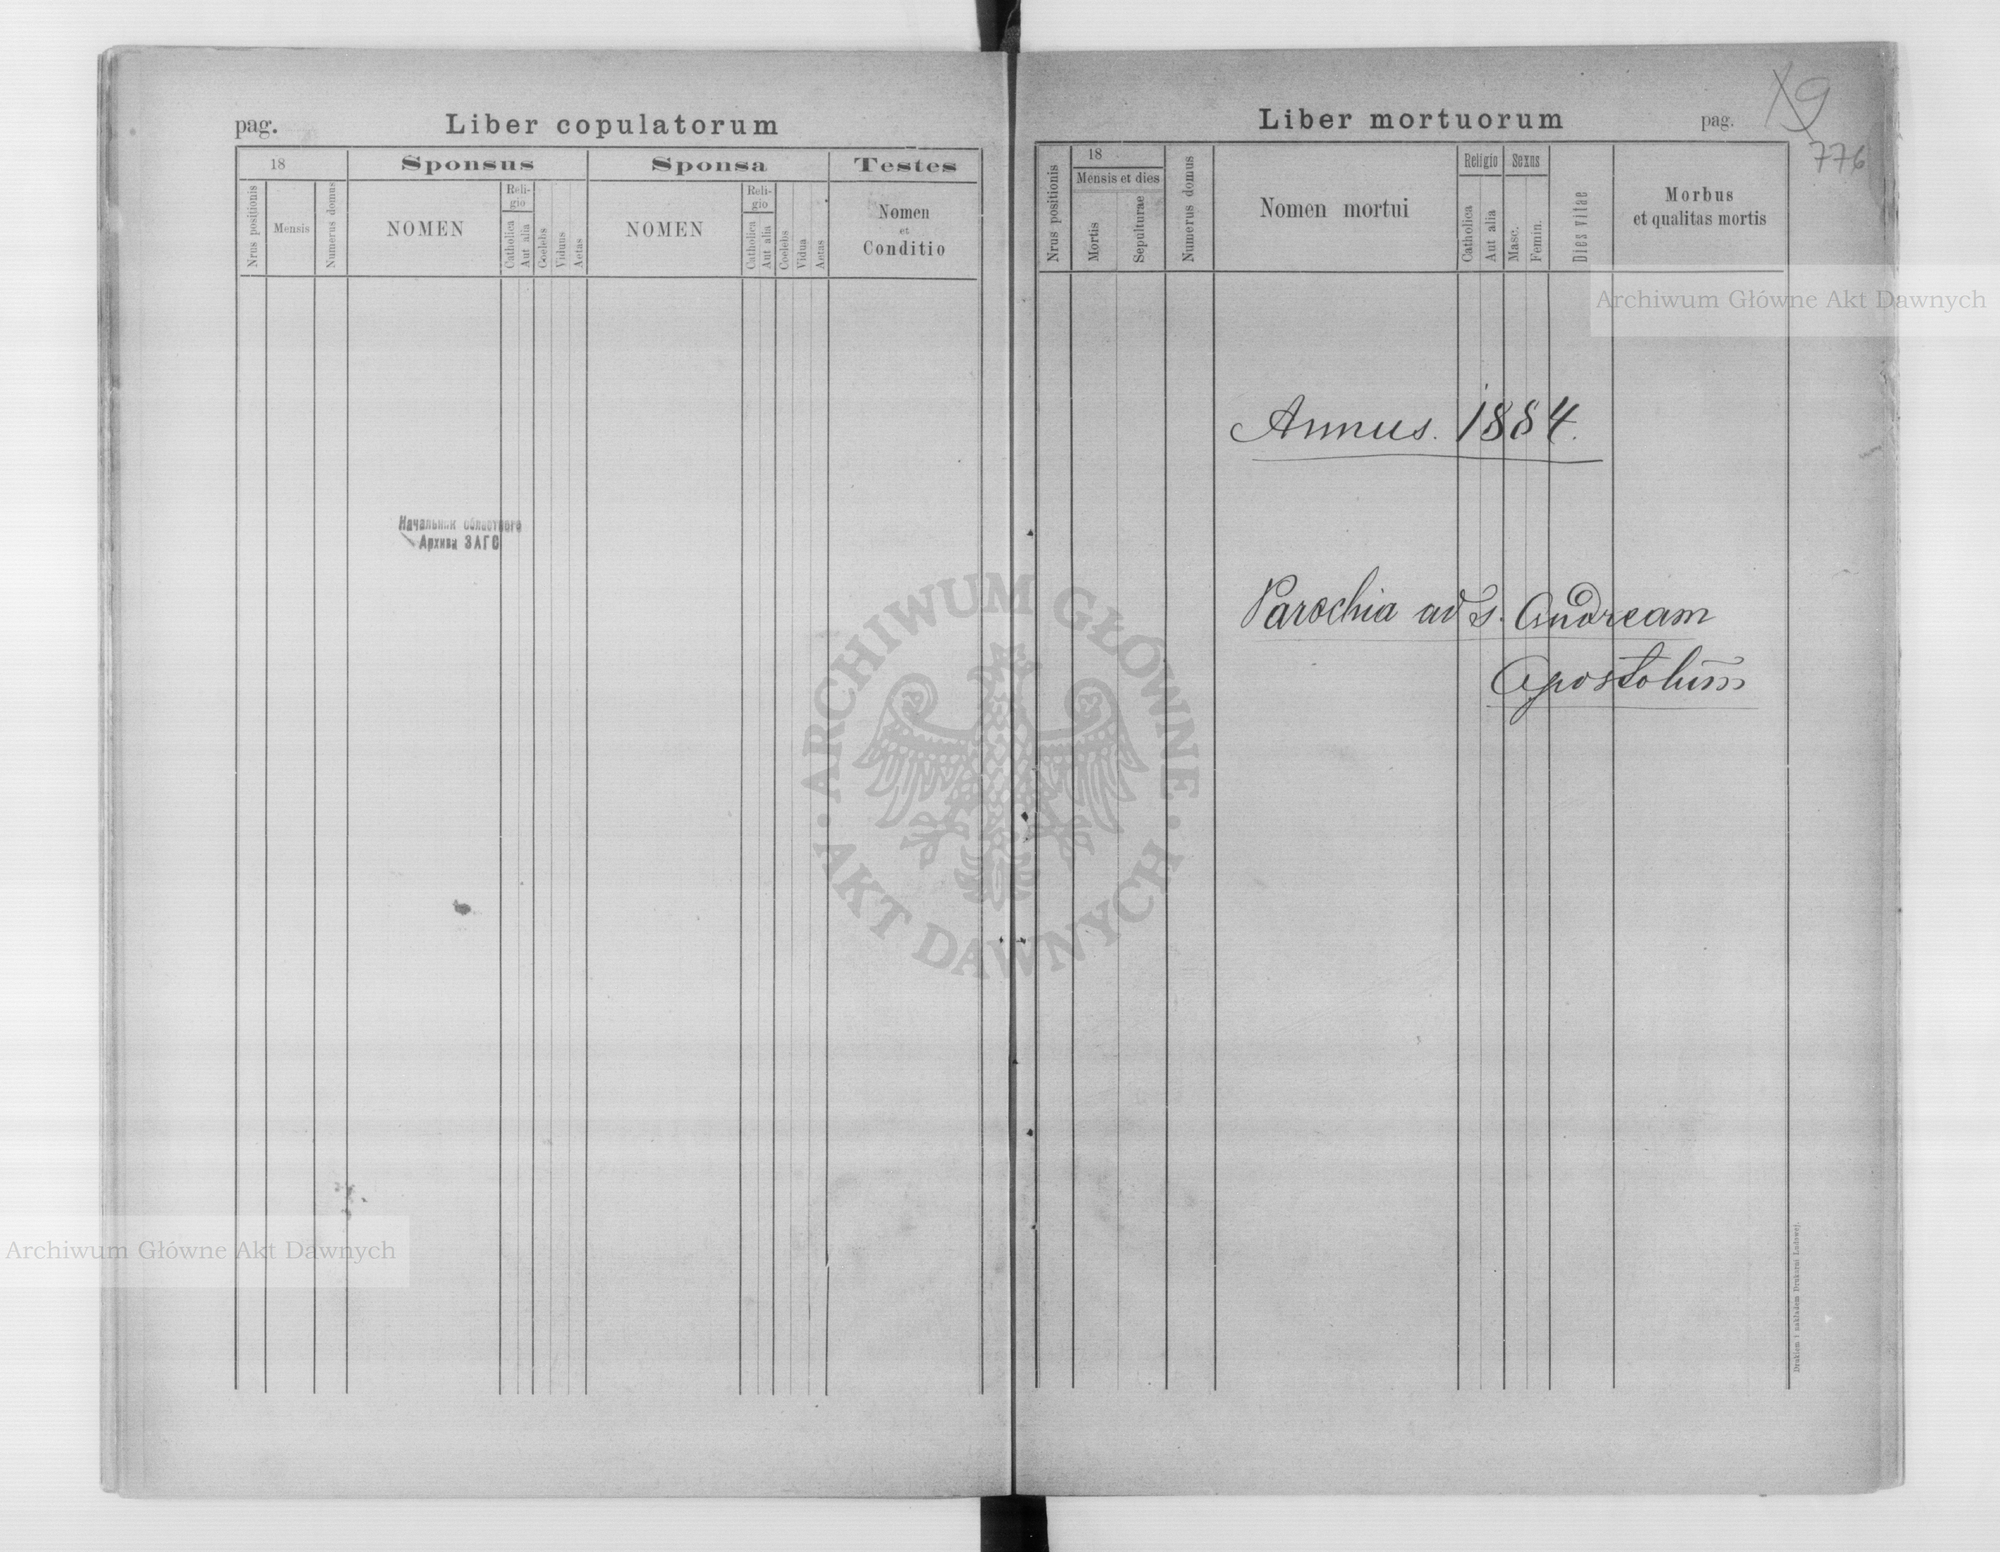 pag.
Liber copulatorum
18
Sponsus
Sponsa
Testes
Nrus positionis
Mensis
Numerus domus
NOMEN
Reli-
gio
Catholica
Aut alia
Coelebs
Viduus
Aetas
NOMEN
Reli-
gio
Catholica
Aut alia
Coelebs
Vidua
Aetas
Nomen
et
Conditio
Начальник областного
Архива ЗАГС
Liber mortuorum
pag.
9
776
Nrus positionis
18
Mensis et dies
Mortis
Sepulturae
Numerus domus
Nomen mortui
Religio
Catholica
Aut alia
Sexus
Masc.
Femin.
Dies vitae
Morbus
et qualitas mortis
Annus. 1884.
Parochia ad s. Andream
Apostolum
Drukiem i nakładem Drukarni Ludowej.
Archiwum Główne Akt Dawnych
ARCHIWUM GŁÓWNE
AKT DAWNYCH
Archiwum Główne Akt Dawnych